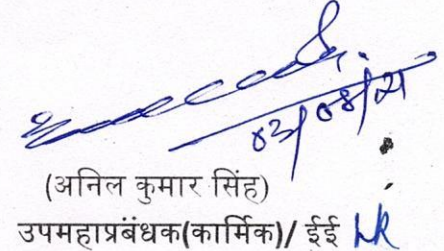 (अनिल कुमार सिंह)
उपमहाप्रबंधक(कार्मिक)/ ईई